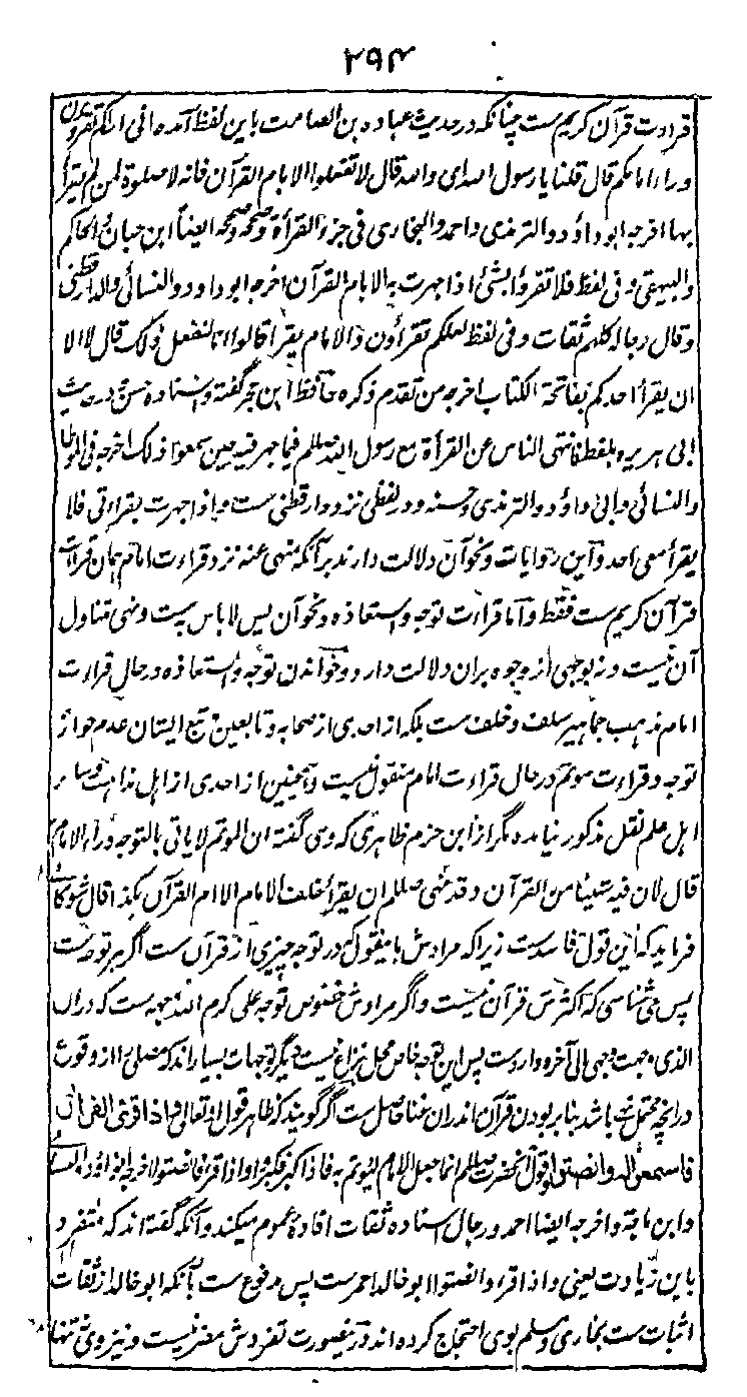 ۲۹۴
قراءت قرآن کریم ست چنانکه در حدیث عباده بن الصامت باین لفظ آمده انی اراکم تقرؤن
وراء امامکم قال قلنا یا رسول الله ای والله قال لا تفعلوا الا بام القرآن فانه لا صلوة لمن لم یقرأ
بها اخرجه ابو داؤد والترمذی واحمد والبخاری فی جزء القرأة وصححه وصححه ایضاً ابن حبان والحاکم
والبیهقی وفی لفظ فلا تقرؤا بشئ اذا جهرت به الا بام القرآن اخرجه ابو داود والنسائی والدارقطنی
وقال رجاله کلهم ثقات وفی لفظ لعلکم تقرأون والامام یقرأ قالوا انا لنفعل ذلک قال لا الا
ان یقرأ احدکم بفاتحة الکتاب اخرجه من تقدم ذکره حافظ ابن حجر گفته واسناده حسن ودر حدیث
ابی هریره بلفظ فانتهی الناس عن القرأة مع رسول الله صللم فیما جهر فیه حین سمعوا ذلک اخرجه فی الموطا
والنسائی وابی داؤد والترمذی وحسنه ودر لفظی نزد دارقطنی ست واذا جهرت بقراءتی فلا
یقرأ معی احد واین روایات ونحو آن دلالت دارند برآنکه منهی عنه نزد قراءت امام همان قراءت
قرآن کریم ست فقط واما قراءت توجه واستعاذه ونحو آن پس لا باس به ست ونهی متناول
آن نیست ونه بوجهی از وجوه بران دلالت دارد وخواندن توجه واستعاذه در حال قراءت
امام مذهب جماهیر سلف وخلف ست بلکه از احدی از صحابه وتابعین وتبع ایشان عدم جواز
توجه وقراءت موتم در حال قراءت امام منقول نیست وهمچنین از احدی از اهل مذاهب وسائر
اهل علم نقل مذکور نیامده مگر از ابن حزم ظاهری که وی گفته ان الموتم لا یاتی بالتوجه وراء الامام
قال لان فیه شیئا من القرآن وقد نهی صللم ان یقرأ خلف الامام الا ام القرآن هکذا قال شوکانی
فرماید که این قول فاسد ست زیرا که مرادش باینقول که در توجه چیزی از قرآن ست اگر هر توجه ست
پس می شناسی که اکثرش قرآن نیست واگر مرادش خصوص توجه علی کرم الله وجهه ست که دران
الذی وجهت وجهی الی آخره وارد ست پس این توجه خاص محل نزاع نیست دیگر توجهات بسیار اند که مصلی را از وقوع
درانچه محتمل باشد بنا بر بودن قرآن اندران غنا حاصل ست اگر گویند که ظاهر قول او تعالی فاذا قرئ القرآن
فاستمعوا له وانصتوا وقول آنحضرت صللم انما جعل الامام لیؤتم به فاذا کبر فکبروا واذا قرأ فانصتوا اخرجه ابو داؤد والنسائی
وابن ماجة واخرجه ایضا احمد ورجال اسناده ثقات افادهٔ عموم میکند وآنکه گفته اند که متفرد
باین زیادت یعنی واذا قرأ وانصتوا ابو خالد احمر ست پس مدفوع ست بآنکه ابو خالد از ثقات
اثبات ست بخاری ومسلم بوی احتجاج کرده اند درینصورت تفردش مضر نیست ونیز وی تنها